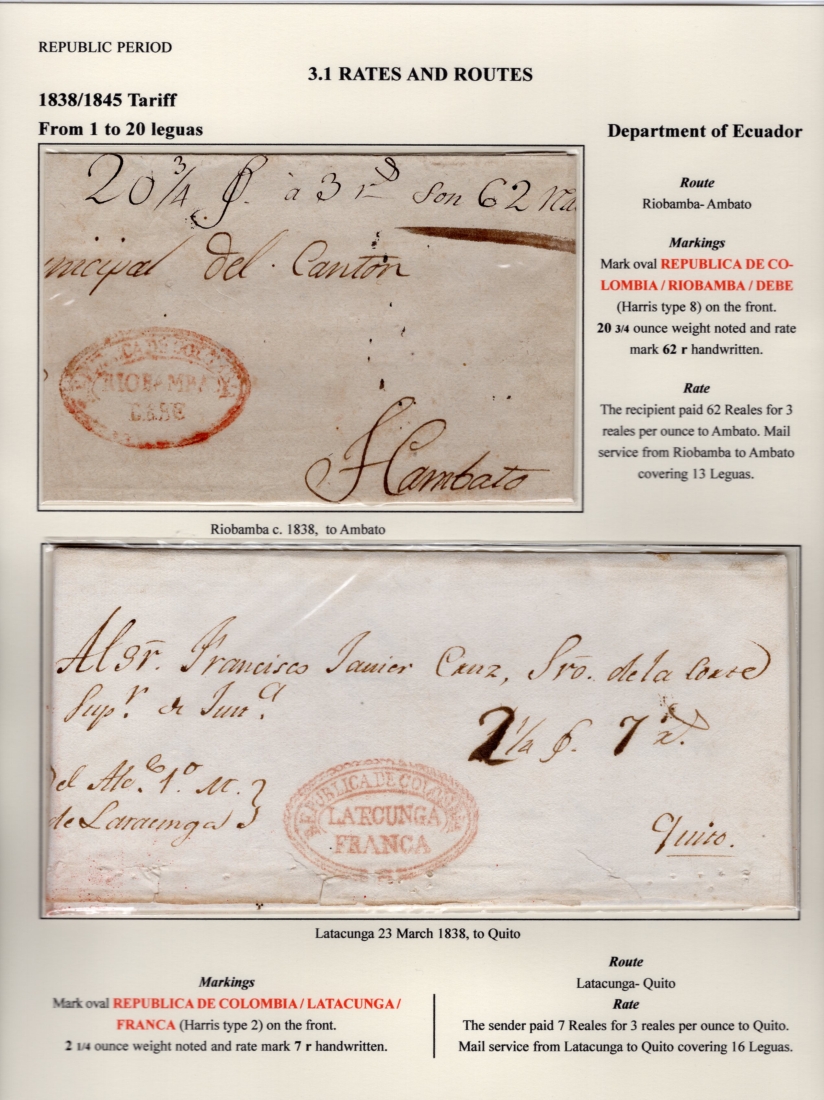 REPUBLIC PERIOD
3.1 RATES AND ROUTES
1838/1845 Tariff
From 1 to 20 leguas
Department of Ecuador
20 3/4 à 3 rs son 62
nicipal del Canton
RIOBAMBA
DEBE
Hambato
Riobamba c. 1838, to Ambato
Route
Riobamba- Ambato
Markings
Mark oval REPUBLICA DE CO-
LOMBIA / RIOBAMBA / DEBE
(Harris type 8) on the front.
20 3/4 ounce weight noted and rate
mark 62 r handwritten.
Rate
The recipient paid 62 Reales for 3
reales per ounce to Ambato. Mail
service from Riobamba to Ambato
covering 13 Leguas.
Al Sr. Francisco Javier Cruz, Sro. de la Corte
Supr. de
2 1/4 7 rs.
del Alce. 1o. M.
de Latacunga
REPUBLICA DE COLOMBIA
LATCUNGA
FRANCA
Quito.
Latacunga 23 March 1838, to Quito
Markings
Mark oval REPUBLICA DE COLOMBIA / LATACUNGA /
FRANCA (Harris type 2) on the front.
2 1/4 ounce weight noted and rate mark 7 r handwritten.
Route
Latacunga- Quito
Rate
The sender paid 7 Reales for 3 reales per ounce to Quito.
Mail service from Latacunga to Quito covering 16 Leguas.